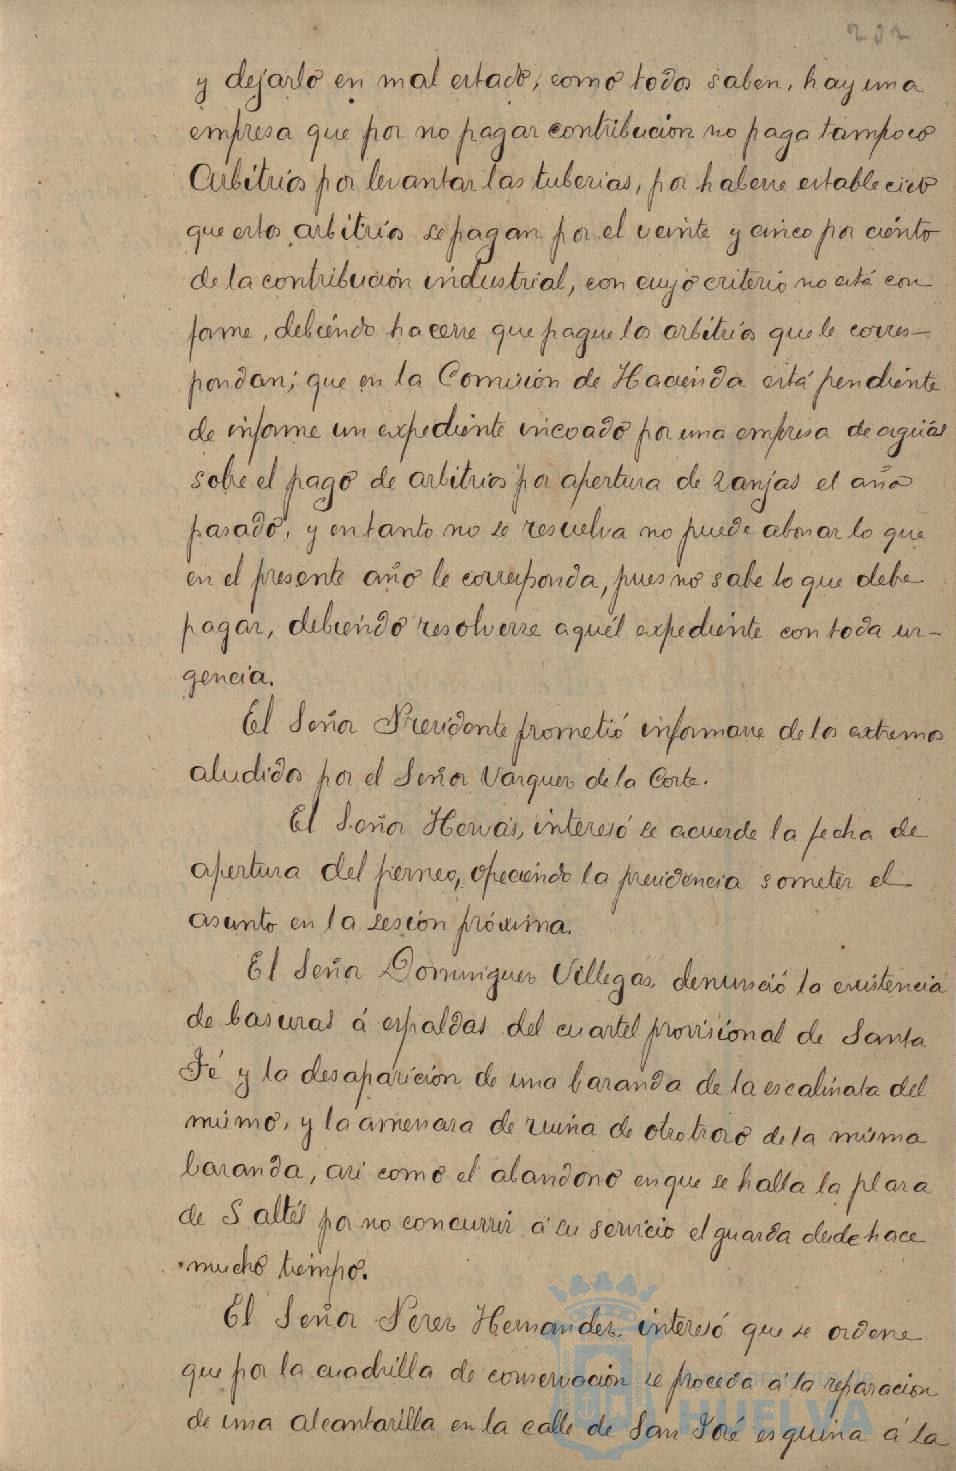 232
y dejarlo en mal estado; como todos saben, hay una
empresa que por no pagar contribución no paga tampoco
Arbitrios por levantar las tuberias, por haberse establecido
que estos arbitrios se pagan por el veinte y cinco por ciento
de la contribución industrial, con cuyo criterio no está con
forme, debiendo hacerse que pague los arbitrios que le corres-
pondan; que en la Comisión de Hacienda está pendiente
de informe un expediente incoado por una empresa de aguas
sobre el pago de arbitrios por apertura de zanjas el año
pasado, y en tanto no se resuelva no puede abonar lo que
en el presente año le corresponda, pues no sabe lo que debe
pagar, debiendo resolverse aquél expediente con toda ur-
gencia.
El Señor Presidente prometió informarse de los extremos
aludidos por el Señor Vazquez de la Corte.
El Señor Hervás, interesó se acuerde la fecha de
apertura del perneo, ofreciendo la presidencia someter el
asunto en la sesión próxima.
El Señor Dominguez Villegas, denunció la existencia
de basuras á espaldas del cuartel provisional de Santa
Fé y la desaparición de una baranda de la escalinata del
mismo, y la amenaza de ruina de otro trozo de la misma
baranda, asi como el abandono en que se halla la plaza
de Saltés por no concurrir á su servicio el guarda desde hace
mucho tiempo.
El Señor Perez Hernandez, interesó que se ordene
que por la cuadrilla de conservación se proceda á la reparacion
de una alcantarilla en la calle de San José esquina á la
HUELVA